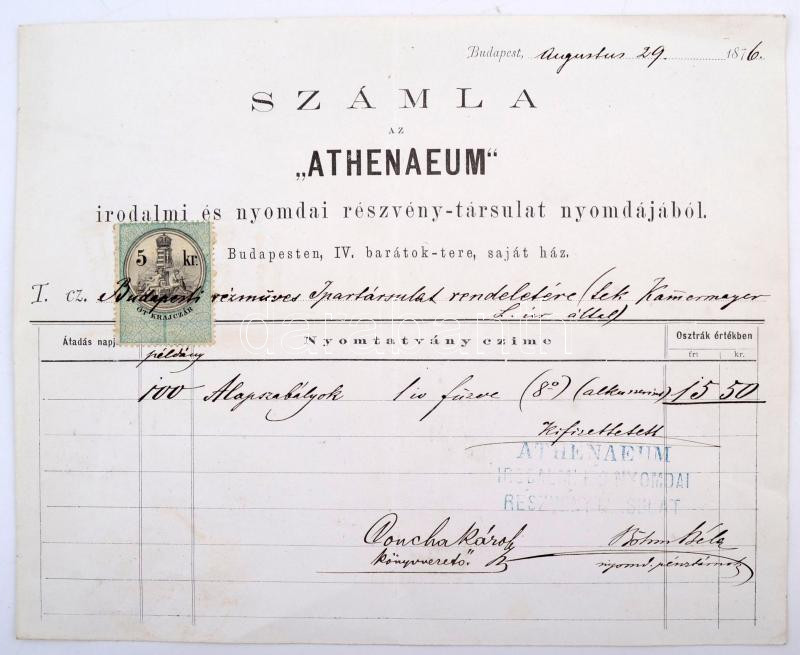 Budapest, Augustus 29. 1876.
SZÁMLA
AZ
„ATHENAEUM“
irodalmi és nyomdai részvény-társulat nyomdájából.
Budapesten, IV. barátok-tere, saját ház.
5 kr.
ÖT KRAJCZÁR
T. cz. Budapesti rézműves Ipartársulat rendeletére (tek Kammermayer
által)
Átadás napja példány Nyomtatvány czime Osztrák értékben
frt kr.
100 Alapszabályok 1 iv fűzve (8º) 15 50
Kifizettetett
ATHENAEUM
IRODALMI ÉS NYOMDAI
RÉSZVÉNYTÁRSULAT
Concha Károly Böhm Béla
könyvvezető. nyomd. pénztárnok